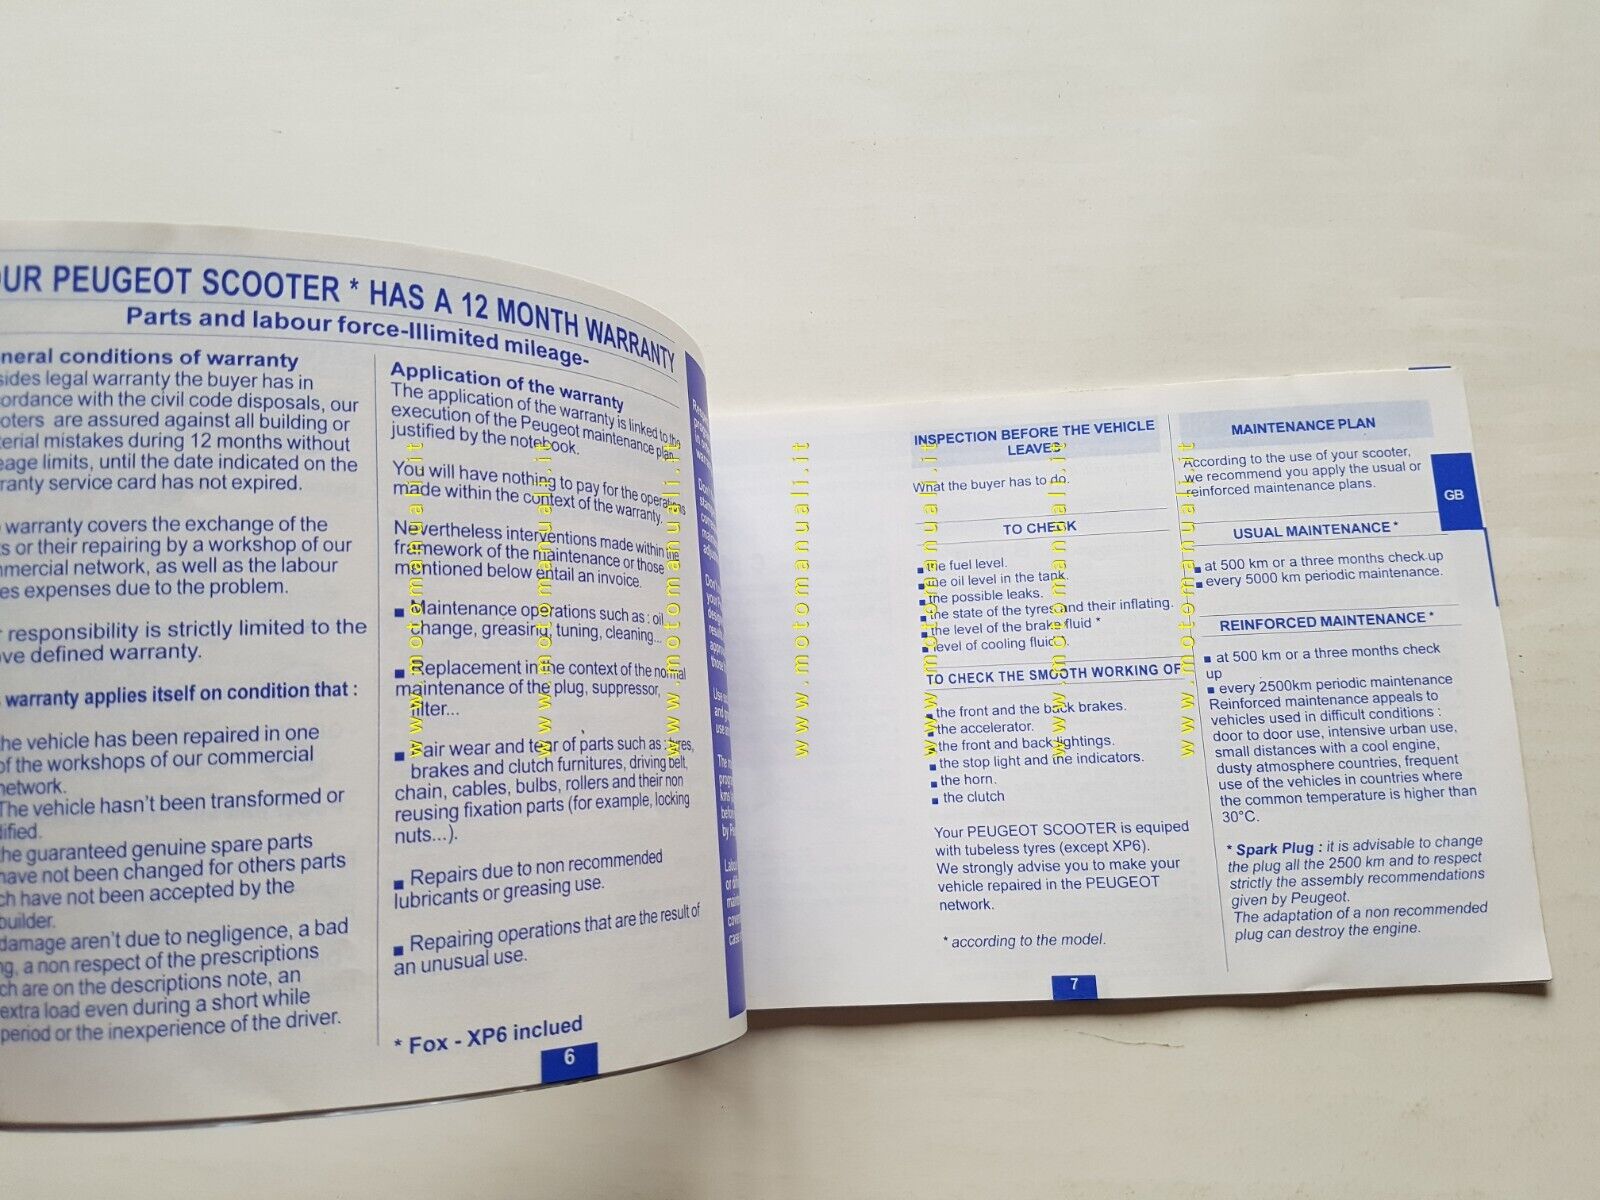 OUR PEUGEOT SCOOTER * HAS A 12 MONTH WARRANTY
Parts and labour force-Illimited mileage-
neral conditions of warranty
sides legal warranty the buyer has in
ordance with the civil code disposals, our
oters are assured against all building or
terial mistakes during 12 months without
eage limits, until the date indicated on the
ranty service card has not expired.
warranty covers the exchange of the
s or their repairing by a workshop of our
mmercial network, as well as the labour
es expenses due to the problem.
r responsibility is strictly limited to the
ve defined warranty.
warranty applies itself on condition that :
he vehicle has been repaired in one
of the workshops of our commercial
network.
The vehicle hasn't been transformed or
dified.
he guaranteed genuine spare parts
have not been changed for others parts
ch have not been accepted by the
builder.
damage aren't due to negligence, a bad
ng, a non respect of the prescriptions
ch are on the descriptions note, an
extra load even during a short while
period or the inexperience of the driver.
Application of the warranty
The application of the warranty is linked to the
execution of the Peugeot maintenance plan
justified by the notebook.
You will have nothing to pay for the operations
made within the context of the warranty.
Nevertheless interventions made within the
framework of the maintenance or those
mentioned below entail an invoice.
■ Maintenance operations such as : oil
change, greasing, tuning, cleaning...
■ Replacement in the context of the normal
maintenance of the plug, suppressor,
filter...
■ Fair wear and tear of parts such as : tyres,
brakes and clutch furnitures, driving belt,
chain, cables, bulbs, rollers and their non
reusing fixation parts (for example, locking
nuts...).
■ Repairs due to non recommended
lubricants or greasing use.
■ Repairing operations that are the result of
an unusual use.
* Fox - XP6 inclued
6
INSPECTION BEFORE THE VEHICLE
LEAVES
What the buyer has to do.
TO CHECK
■ the fuel level.
■ the oil level in the tank.
■ the possible leaks.
■ the state of the tyres and their inflating.
■ the level of the brake fluid *
■ level of cooling fluid
TO CHECK THE SMOOTH WORKING OF
■ the front and the back brakes.
■ the accelerator.
■ the front and back lightings.
■ the stop light and the indicators.
■ the horn.
■ the clutch
Your PEUGEOT SCOOTER is equiped
with tubeless tyres (except XP6).
We strongly advise you to make your
vehicle repaired in the PEUGEOT
network.
* according to the model.
7
MAINTENANCE PLAN
According to the use of your scooter,
we recommend you apply the usual or
reinforced maintenance plans.
USUAL MAINTENANCE *
■ at 500 km or a three months check up
■ every 5000 km periodic maintenance.
REINFORCED MAINTENANCE *
■ at 500 km or a three months check
up
■ every 2500km periodic maintenance
Reinforced maintenance appeals to
vehicles used in difficult conditions :
door to door use, intensive urban use,
small distances with a cool engine,
dusty atmosphere countries, frequent
use of the vehicles in countries where
the common temperature is higher than
30°C.
* Spark Plug : it is advisable to change
the plug all the 2500 km and to respect
strictly the assembly recommendations
given by Peugeot.
The adaptation of a non recommended
plug can destroy the engine.
GB
www.motomanuali.it
www.motomanuali.it
www.motomanuali.it
www.motomanuali.it
www.motomanuali.it
www.motomanuali.it
www.motomanuali.it